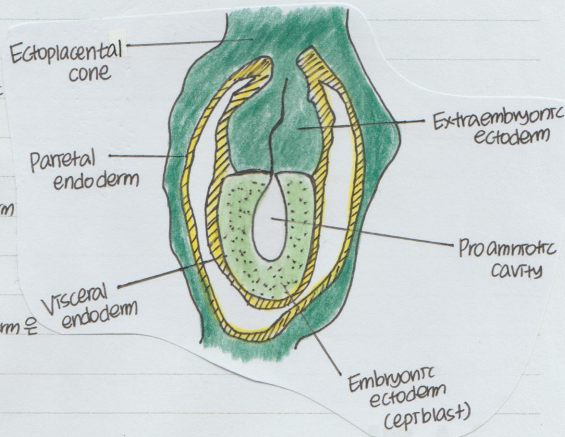 Ectoplacental
cone
Extraembryonic
ectoderm
Parietal
endoderm
Proamniotic
cavity
Visceral
endoderm
Embryonic
ectoderm
(epiblast)
rm
rm은